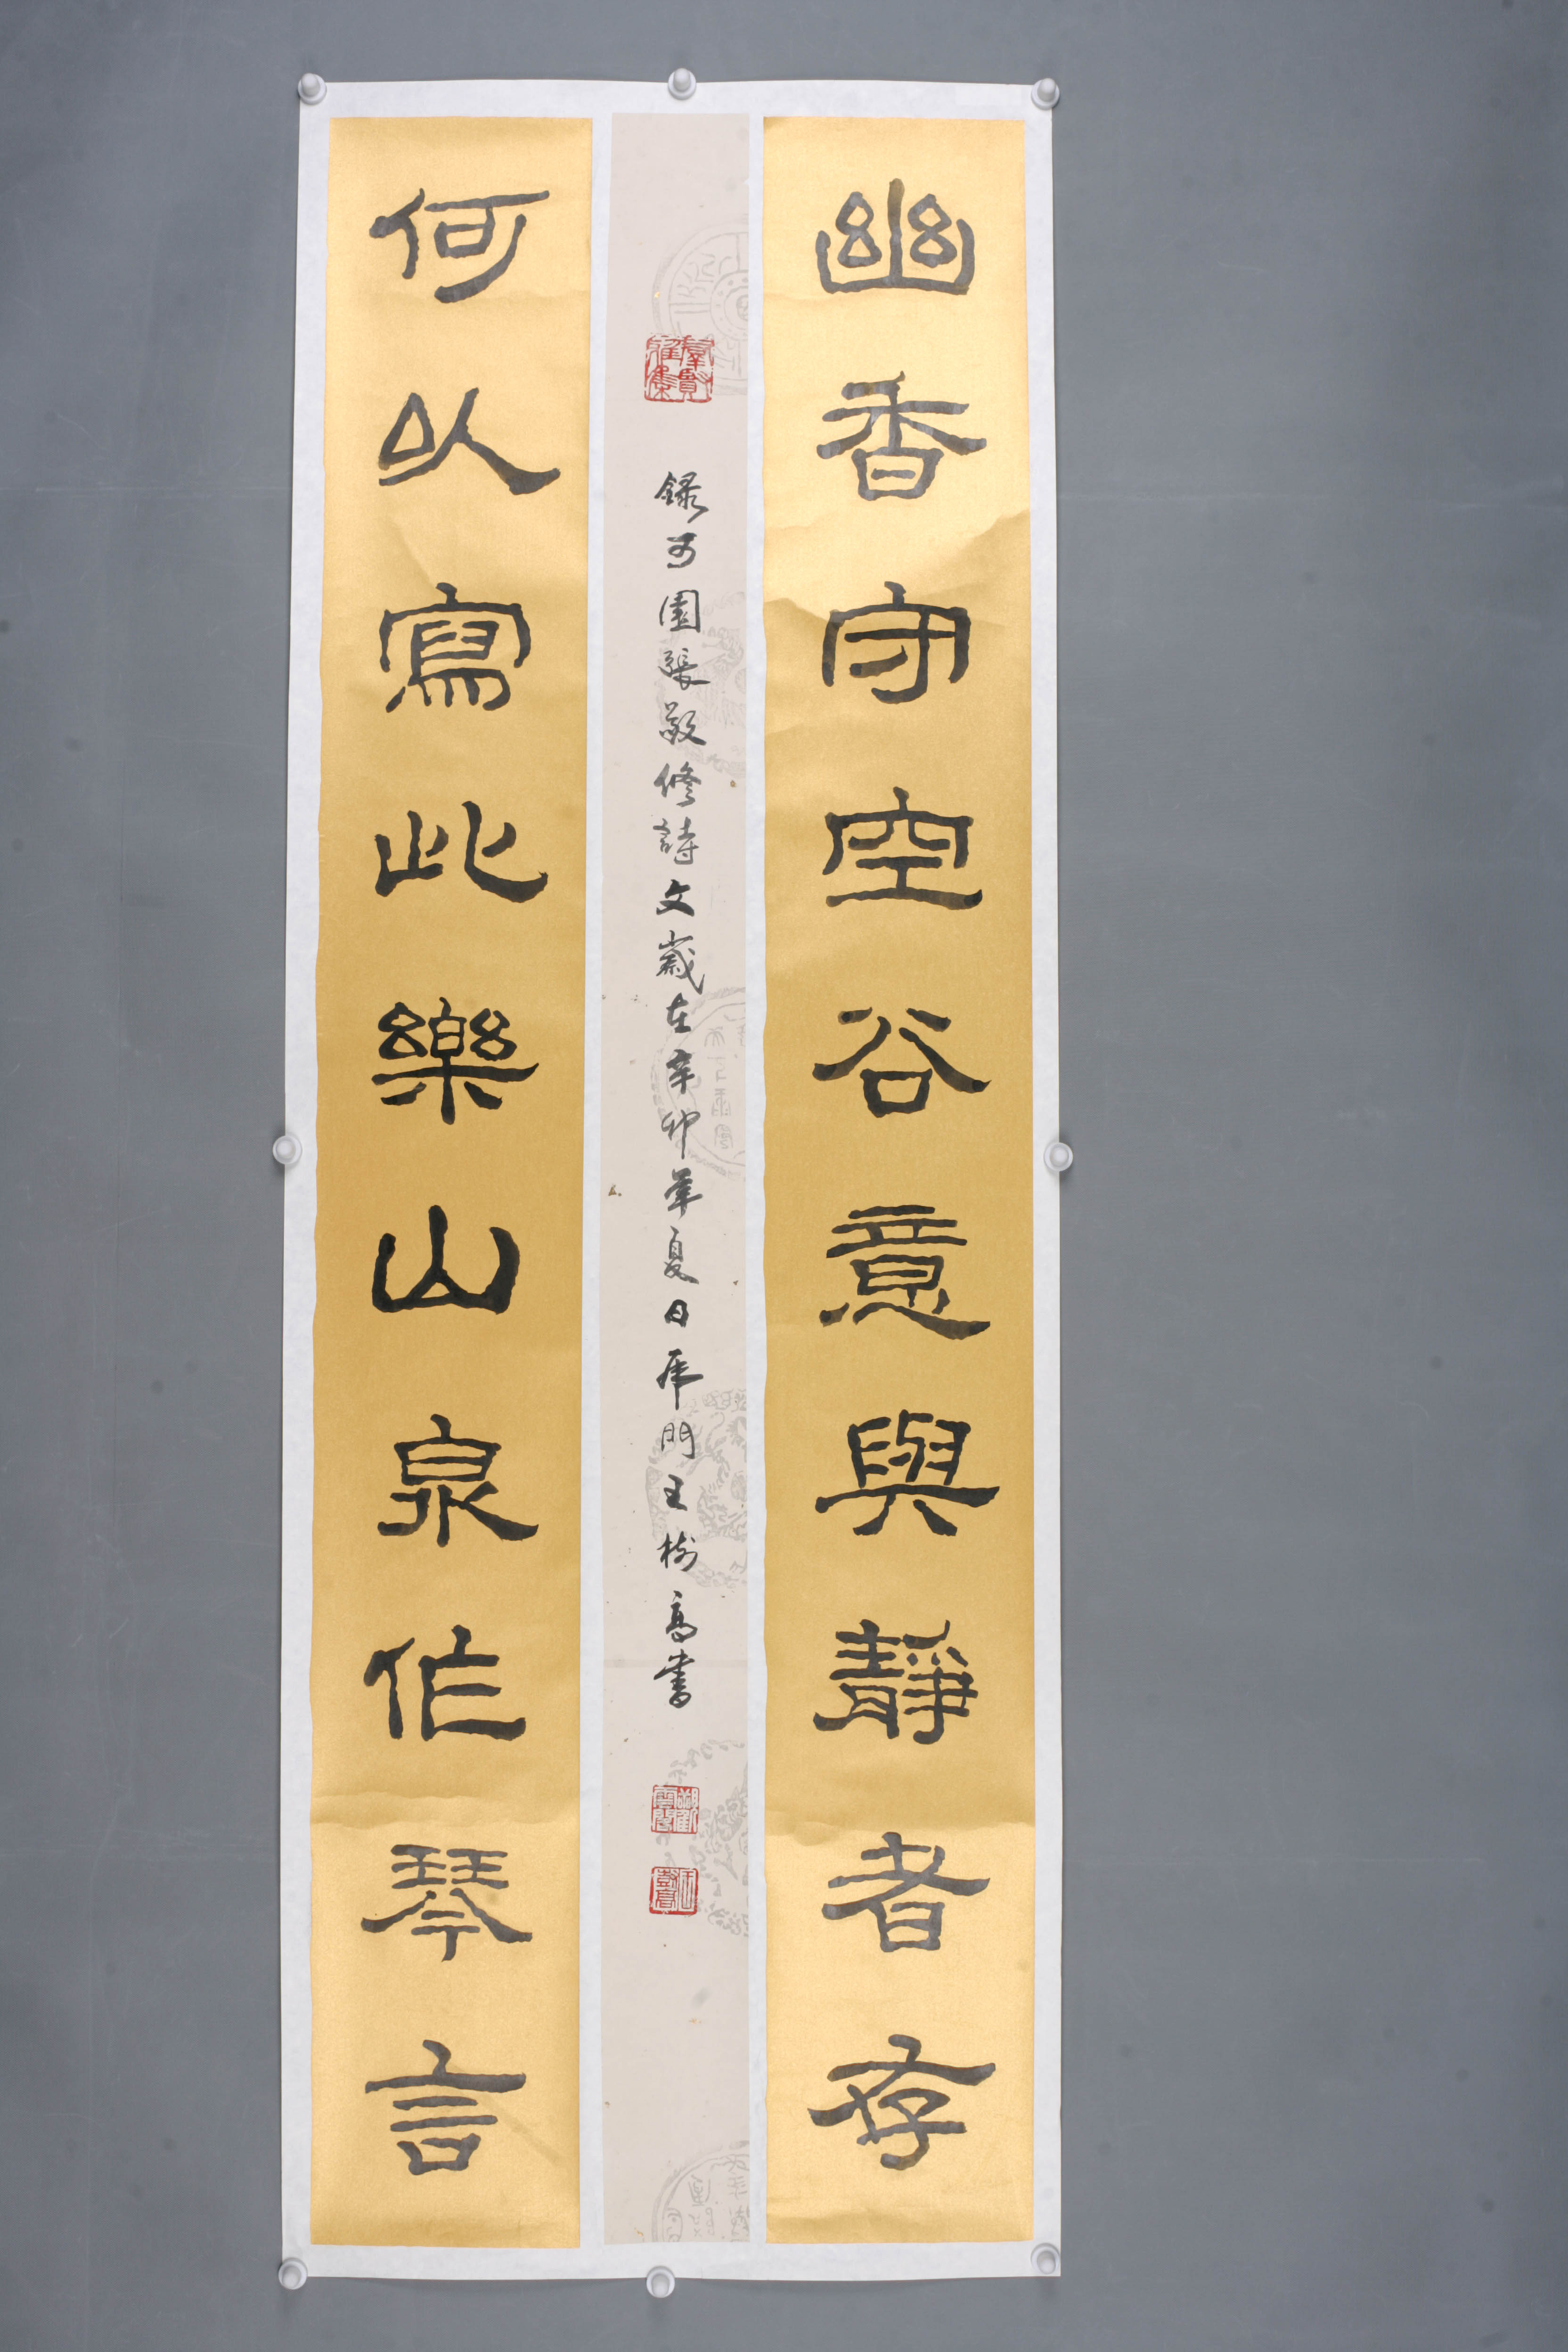 幽香守空谷意與靜者存
群賢雅集
錄可園張敬修詩文歲在辛卯年夏日虎門王樹高書
何以寫此樂山泉作琴言